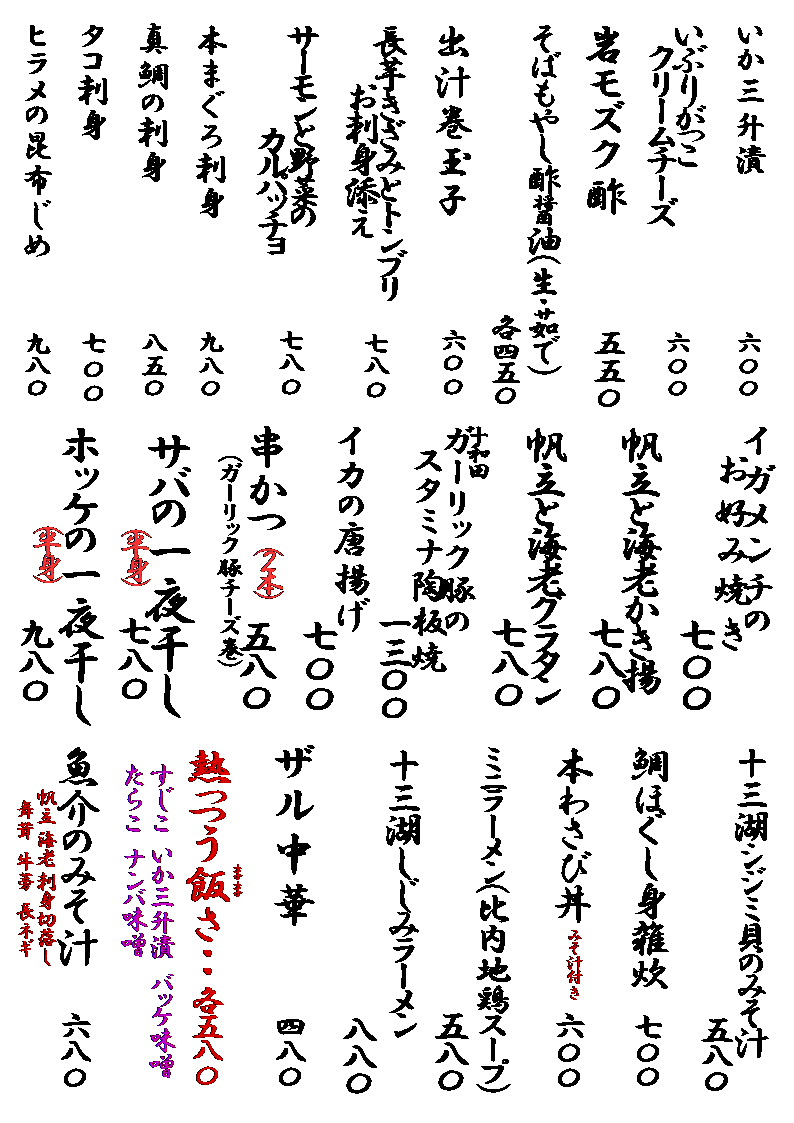 いか三升漬
六〇〇
いぶりがっこ
クリームチーズ
六〇〇
岩モズク酢
五五〇
そばもやし酢醤油(生・茹で)
各四五〇
出汁巻玉子
六〇〇
長芋きざみとトンブリ
お刺身添え
七八〇
サーモンと野菜の
カルパッチョ
七八〇
本まぐろ刺身
九八〇
真鯛の刺身
八五〇
タコ刺身
七〇〇
ヒラメの昆布じめ
九八〇
イガメンチの
お好み焼き
七〇〇
帆立と海老かき揚
七八〇
帆立と海老グラタン
七八〇
十和田
ガーリック豚の
スタミナ陶板焼
一三〇〇
イカの唐揚げ
七〇〇
串かつ(2本)
(ガーリック豚チーズ巻)
五八〇
サバの一夜干し
(半身)
七八〇
ホッケの一夜干し
(半身)
九八〇
十三湖シジミ貝のみそ汁
五八〇
鯛ほぐし身雑炊
七〇〇
本わさび丼 みそ汁付き
六〇〇
ミニラーメン(比内地鶏スープ)
五八〇
十三湖しじみラーメン
八八〇
ザル中華
四八〇
まま
熱っつう飯さ・・各五八〇
すじこ いか三升漬 バッケ味噌
たらこ ナンバ味噌
魚介のみそ汁
帆立 海老 刺身切落し
舞茸 牛蒡 長ネギ
六八〇